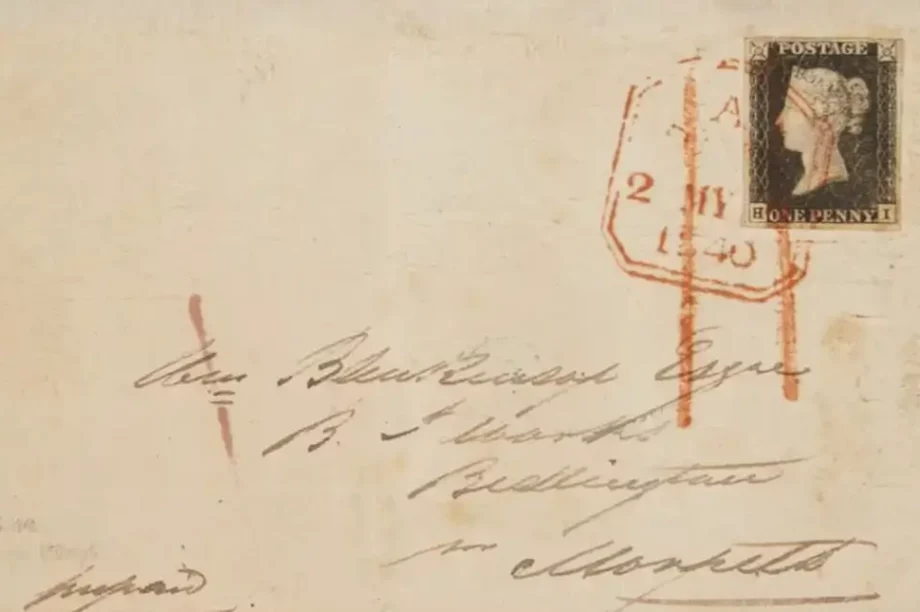 POSTAGE
A
2 MY
1840
H ONE PENNY I
Wm Blenkinsop Esqre
B. I. Works
Bedlington
nr Morpeth
prepaid